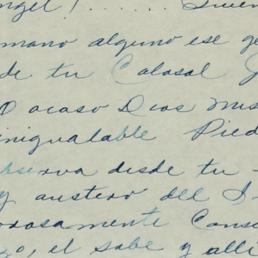 ngel!......
mano alguno ese ge
de tu Colosal
O ocaso Dios mis
inigualable Pied
bserva desde tu
y austero del
orosamente Cons
, el sabe y alli